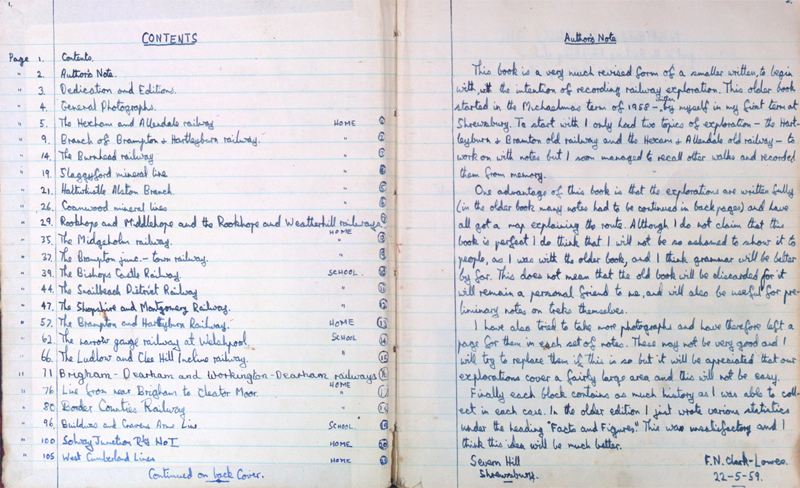 1.
CONTENTS
Page 1. Contents.
" 2. Author's Note.
" 3. Dedication and Edition.
" 4. General Photographs.
" 5. The Hexham and Allendale railway HOME
" 9. Branch of Brampton & Hartleyburn railway. "
" 14. The Burnhead railway "
" 19. Slaggyford mineral line "
" 21. Haltwhistle Alston Branch "
" 26. Coanwood mineral lines "
" 29. Rookhope and Middlehope and the Rookhope and Weatherhill railways
HOME
" 35. The Midgeholm railway. "
" 37. The Brampton junc. - town railway. "
" 39. The Bishops Castle Railway SCHOOL.
" 44. The Snailbeach District Railway "
" 47. The Shropshire and Montgomery Railway. "
" 57. The Brampton and Hartleyburn Railway. HOME
" 62. The narrow gauge railway at Welshpool. SCHOOL
" 66. The Ludlow and Clee Hill Incline railway. "
" 71 Brigham - Dearham and Workington - Dearham railways
HOME
" 76 Line from near Brigham to Cleator Moor. "
" 80 Border Counties Railway "
" 96. Buildwas and Craven Arms Line SCHOOL.
" 100 Solway Junction Rly No I HOME
" 105 West Cumberland Lines HOME
Continued on back Cover.
2.
Author's Note
This book is a very much revised form of a smaller written, to begin
with, with the intention of recording railway exploration. This older book
started in the Michaelmas term of 1958 - by myself in my first term at
Shrewsbury. To start with I only had two topics of exploration - the Hart-
leyburn & Bramton old railway and the Hexam & Allendale old railway - to
work on with notes but I soon managed to recall other walks and recorded
them from memory.
One advantage of this book is that the explorations are written fully
(in the older book many notes had to be continued in back pages) and have
all got a map explaining the route. Although I do not claim that this
book is perfect I do think that I will not be so ashamed to show it to
people, as I was with the older book, and I think grammar will be better
by far. This does not mean that the old book will be discarded for it
will remain a personal friend to me, and will also be useful for pre-
liminary notes on treks themselves.
I have also tried to take more photographs and have therefore left a
page for them in each set of notes. These may not be very good and I
will try to replace them if this is so but it will be appreciated that our
explorations cover a fairly large area and this will not be easy.
Finally each block contains as much history as I was able to coll-
ect in each case. In the older edition I just wrote various statistics
under the heading "Facts and Figures." This was unsatisfactory and I
think this idea will be much better.
Severn Hill F.N. Clark-Lowes.
Shrewsbury. 22-5-59.